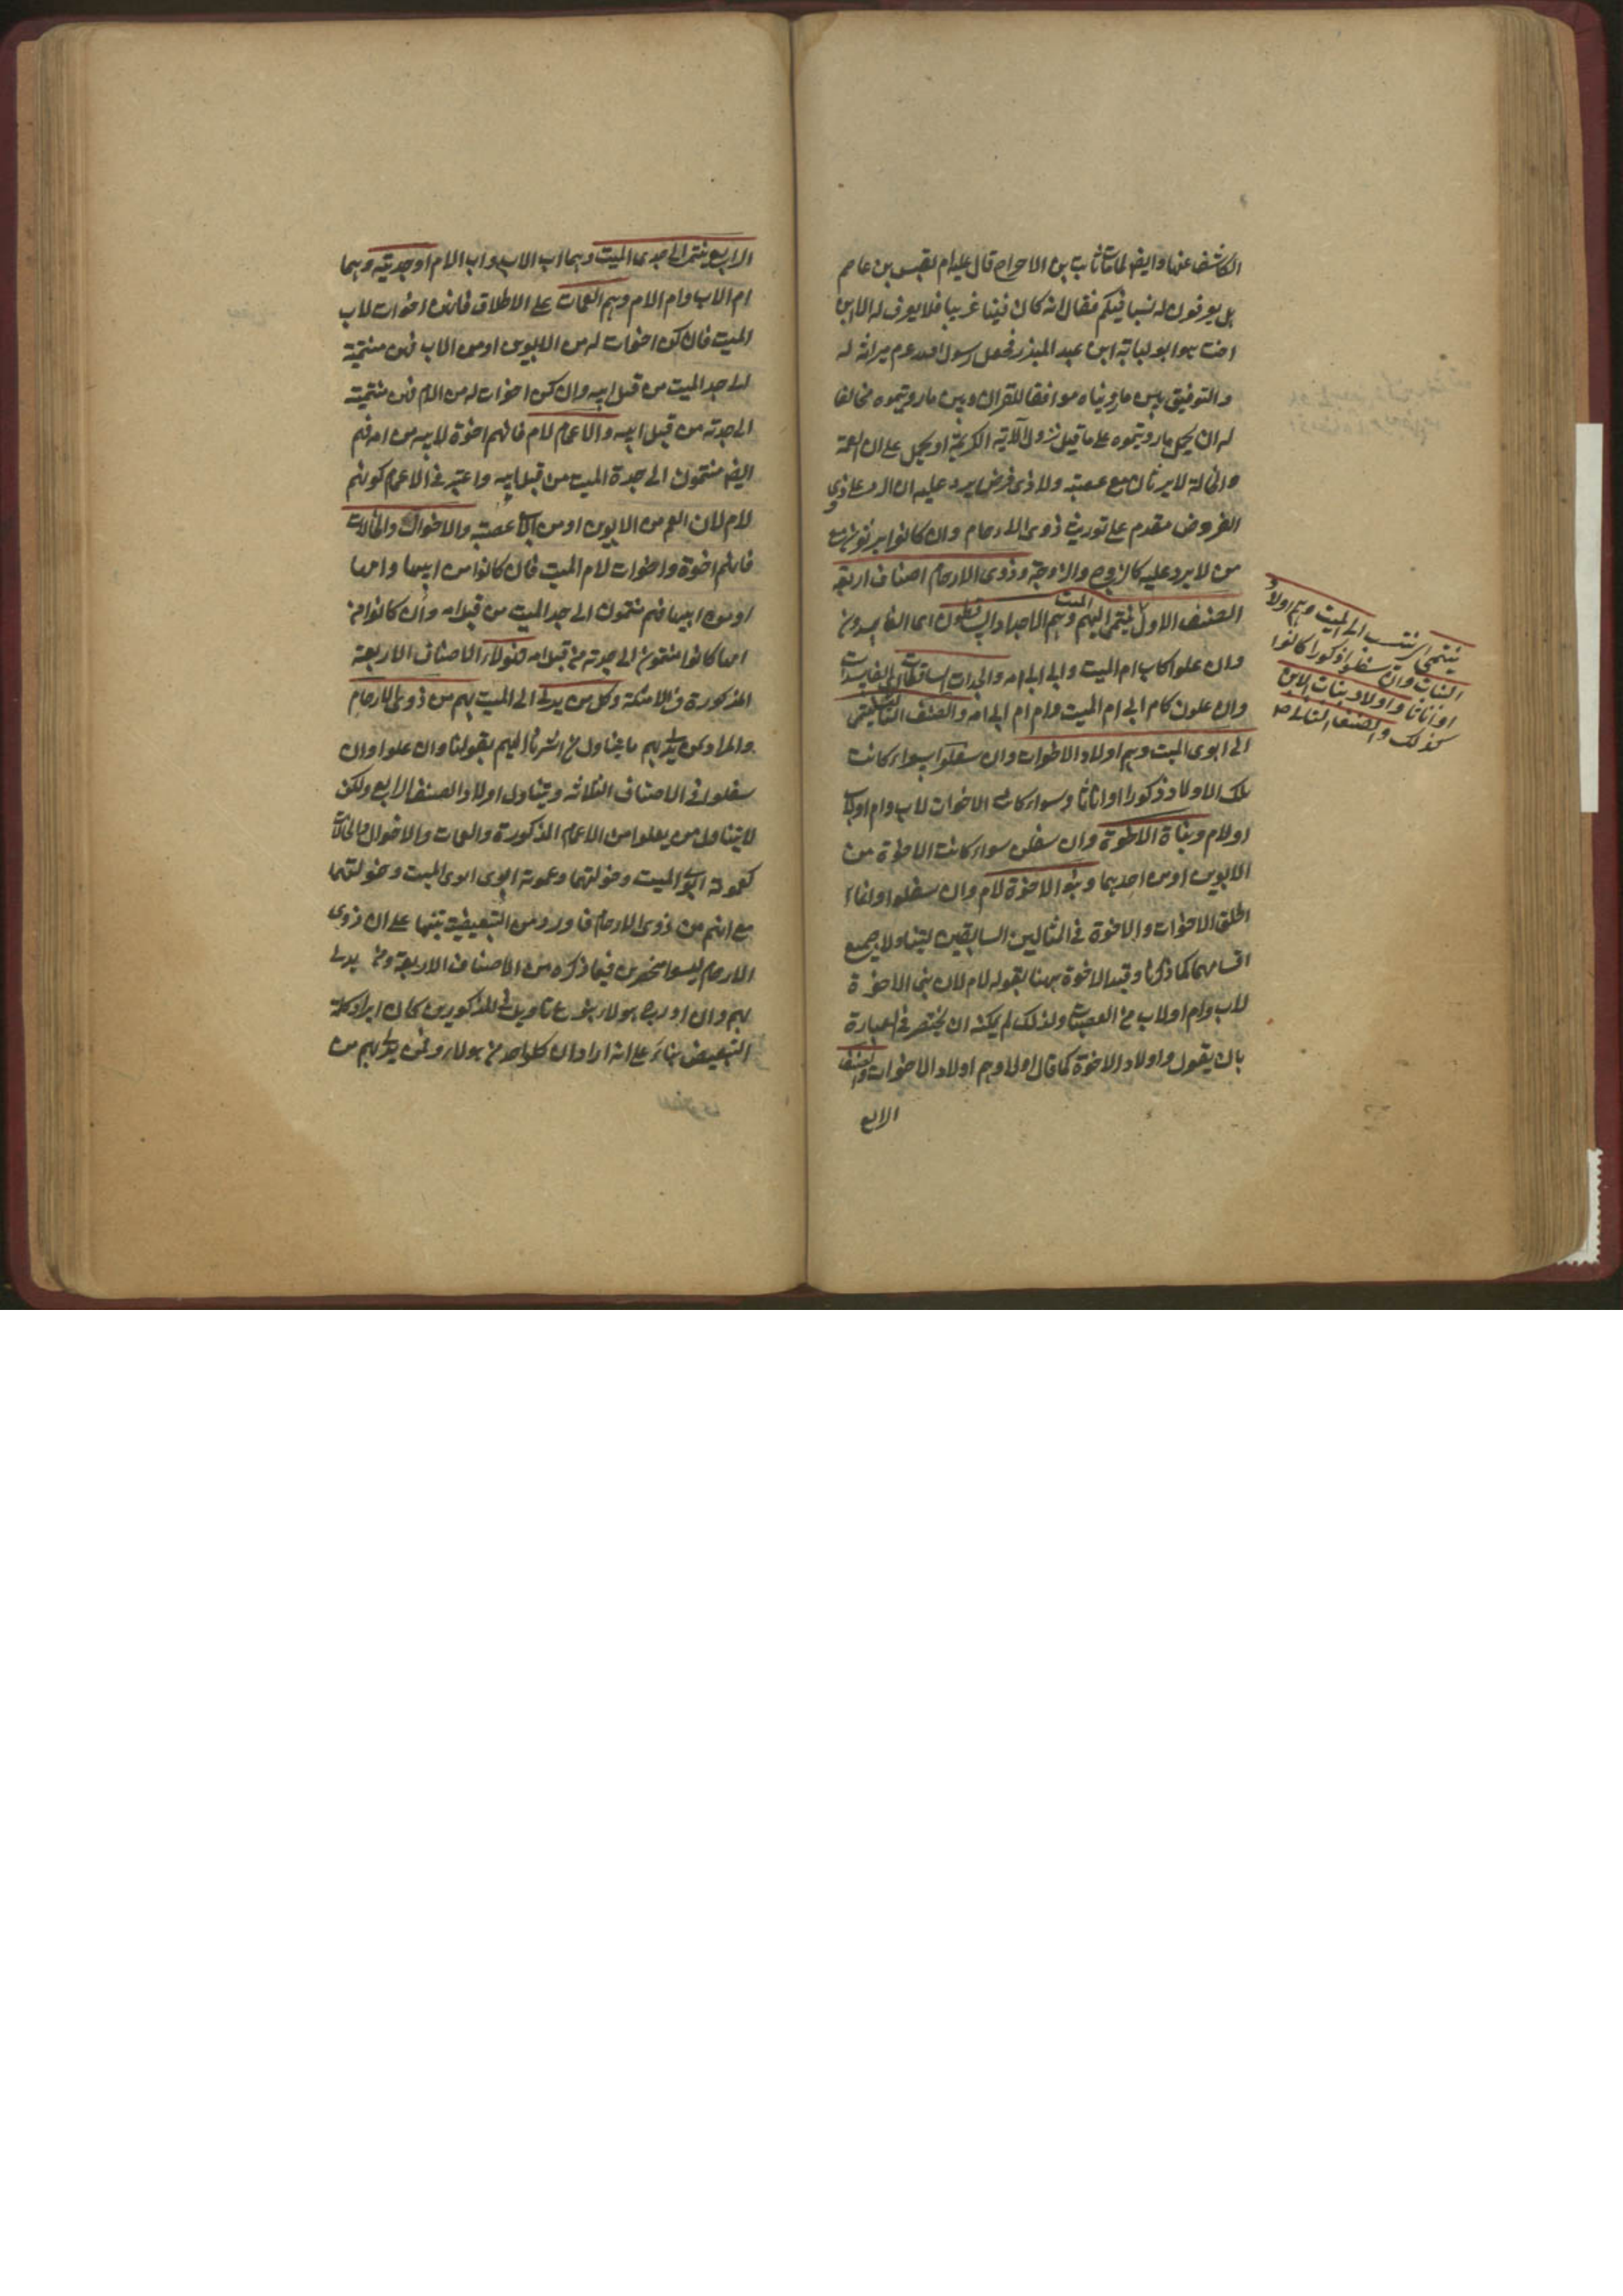 الكاشف عنها وايضا لما مات ثابت بن الدحداح قال عليه السلام لقيس بن عاصم
هل تعرفون له نسبا فيكم فقال انه كان فينا غريبا فلا يعرف له الا ابن
اخت هو ابو لبابة ابن عبد المنذر فجعل رسول الله عم ميراثه له
والتوفيق بين ما رويناه موافقا للقران وبين ما رويتموه مخالفا
له ان يحمل ما رويتموه على ما قبل نزول الآية الكريمة او يحمل على ان العمة
والخالة لا يرثان مع عصبة ولا ذي فرض يرد عليه ان الرد على ذوي
الفروض مقدم على توريث ذوي الارحام وان كانوا يرثون مع
من لا يرد عليه كالزوج والزوجة وذوي الارحام اصناف اربعة
الصنف الاول ينتمي اليهم الميت وهم الاجداد الساقطون اي الفاسدون
وان علوا كاب ام الميت واب اب امه والجدات الساقطات اي الفاسدات
وان علون كام اب ام الميت وام ام اب امه والصنف الثالث ينتمي
الى ابوي الميت وهم اولاد الاخوات وان سفلوا سواء كانت
تلك الاولاد ذكورا او اناثا وسواء كانت الاخوات لاب وام او لاب
او لام وبنات الاخوة وان سفلن سواء كانت الاخوة من
الابوين او من احدهما وبنو الاخوة لام وان سفلوا وانما
اطلق الاخوات والاخوة في المثالين السابقين ليتناولا جميع
اقسامهما كما ذكرنا وقيد الاخوة ههنا بقوله لام لان بني الاخوة
لاب وام او لاب من العصبات ولذلك لم يمكنه ان يختصر في العبارة
بان يقول واولاد الاخوة كما قال اولا وهم اولاد الاخوات والصنف
الرابع
ينتمي اي ينتسب الى الميت وهم اولاد
البنات وان سفلوا ذكورا كانوا
او اناثا واولاد بنات الابن
كذلك والصنف الثاني
الرابع ينتمي الى جدي الميت وهما اب الاب واب الام او جدتيه وهما
ام الاب وام الام وهم العمات على الاطلاق فانهن اخوات لاب
الميت فان كن اخوات له من الابوين او من الاب فهن منتمية
الى جد الميت من قبل ابيه وان كن اخوات له من الام فهن منتمية
الى جدته من قبل ابيه والاعمام لام فانهم اخوة لابيه من امه فهم
ايضا منتمون الى جدة الميت من قبل ابيه واعتبر في الاعمام كونهم
لام لان العم من الابوين او من الاب عصبة والاخوال والخالات
فانهم اخوة واخوات لام الميت فان كانوا من ابيها وامها
او من ابيها فهم منتمون الى جد الميت من قبل امه وان كانوا من
امها كانوا منتمون الى جدته من قبل امه فهؤلاء الاصناف الاربعة
المذكورة في الامثلة وكل من يدلى الى الميت بهم من ذوي الارحام
والمراد بمن يدلى بهم ما يتناول من اشرنا اليهم بقولنا وان علوا وان
سفلوا في الاصناف الثلاثة ويتناول اولاد الصنف الرابع ولكن
لا يتناول من يعلوا من الاعمام المذكورة والعمات والاخوال والخالات
كعمومة ابوي الميت وخولتهما وعمومة ابوي ابوي الميت وخولتهما
مع انهم من ذوي الارحام فاورد من التبعيضية تنبيها على ان ذوي
الارحام ليسوا منحصرين فيما ذكره من الاصناف الاربعة ومن يدلى
بهم وان اورد هولاء بنوع تاويل في المذكورين كان ايراد كلمة
التبعيض بناء على انه اراد ان كل واحد من هولاء وممن يدلى بهم من